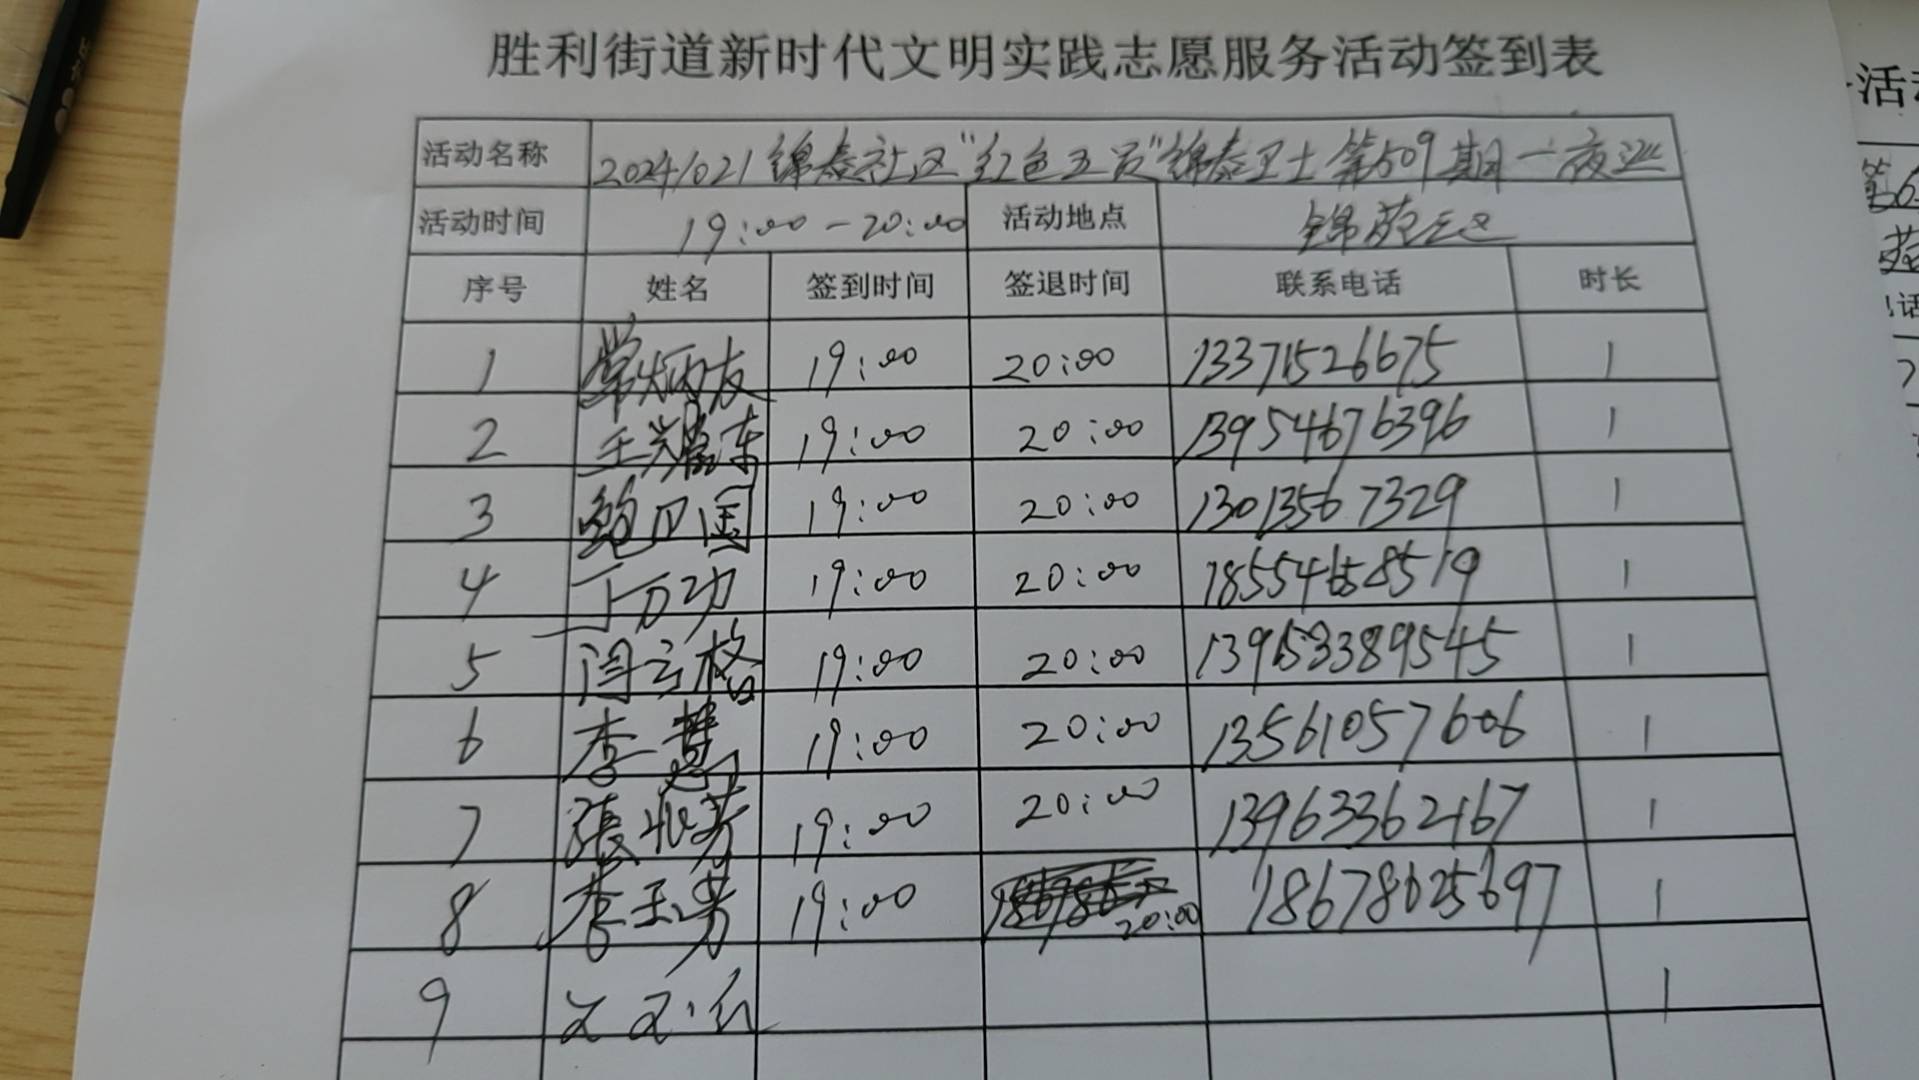 胜利街道新时代文明实践志愿服务活动签到表
活动名称 20241021锦泰社区"红色五员"锦泰卫士第509期一夜巡
活动时间 19:00-20:00 活动地点 锦苑三区
序号 姓名 签到时间 签退时间 联系电话 时长
1 常炳友 19:00 20:00 13371526675 1
2 王耀东 19:00 20:00 13954676396 1
3 鲍卫国 19:00 20:00 13013567329 1
4 丁万功 19:00 20:00 18554658519 1
5 闫云格 19:00 20:00 13953389545 1
6 李慧 19:00 20:00 13561057606 1
7 張兆芳 19:00 20:00 13963362167 1
8 李玉芳 19:00 20:00 18678625697 1
9 1
活
第6
苑
话